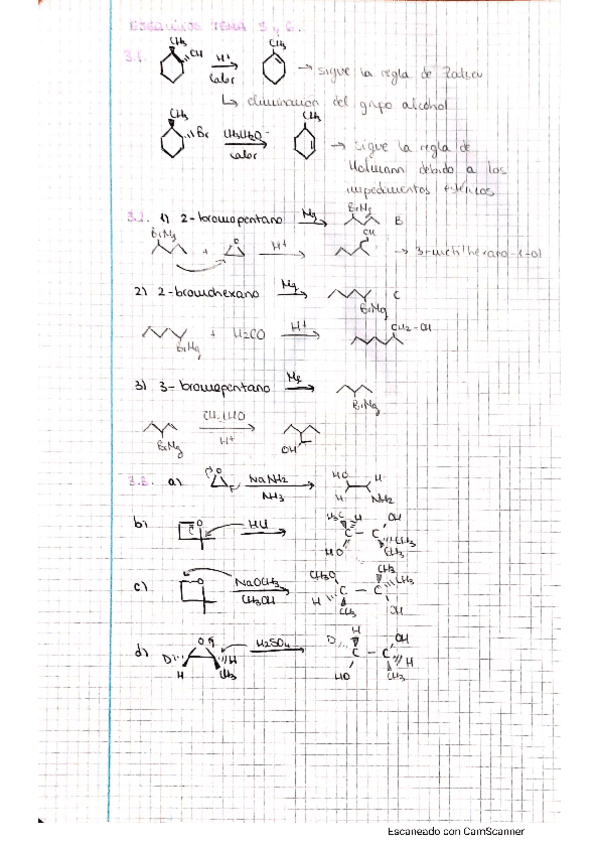 TEMA 3 y 6.
3.1. CH₃ OH H⁺ calor CH₃ → sigue la regla de Zaitsev
↳ eliminación del grupo alcohol
CH₃ Br CH₃CH₂O⁻ calor CH₃ → Sigue la regla de
Hofmann debido a los
impedimentos estéricos
3.2. 1) 2-bromopentano Mg BrMg B
BrMg + O H⁺ OH → 3-metilhexano-1-ol
2) 2-bromohexano Mg C
BrMg
BrMg + H₂CO H⁺ CH₂-OH
3) 3-bromopentano Mg
BrMg
BrMg H⁺ OH
a) O NaNH₂ NH₃ HO H H NH₂
b) O H₃C H OH C - C CH₃ HO CH₃
c) O NaOCH₃ CH₃OH CH₃O CH₃ CH₃ H C - C CH₃ OH
d) D O H CH₃ H H₂SO₄ H D OH C - C H HO CH₃
Escaneado con CamScanner